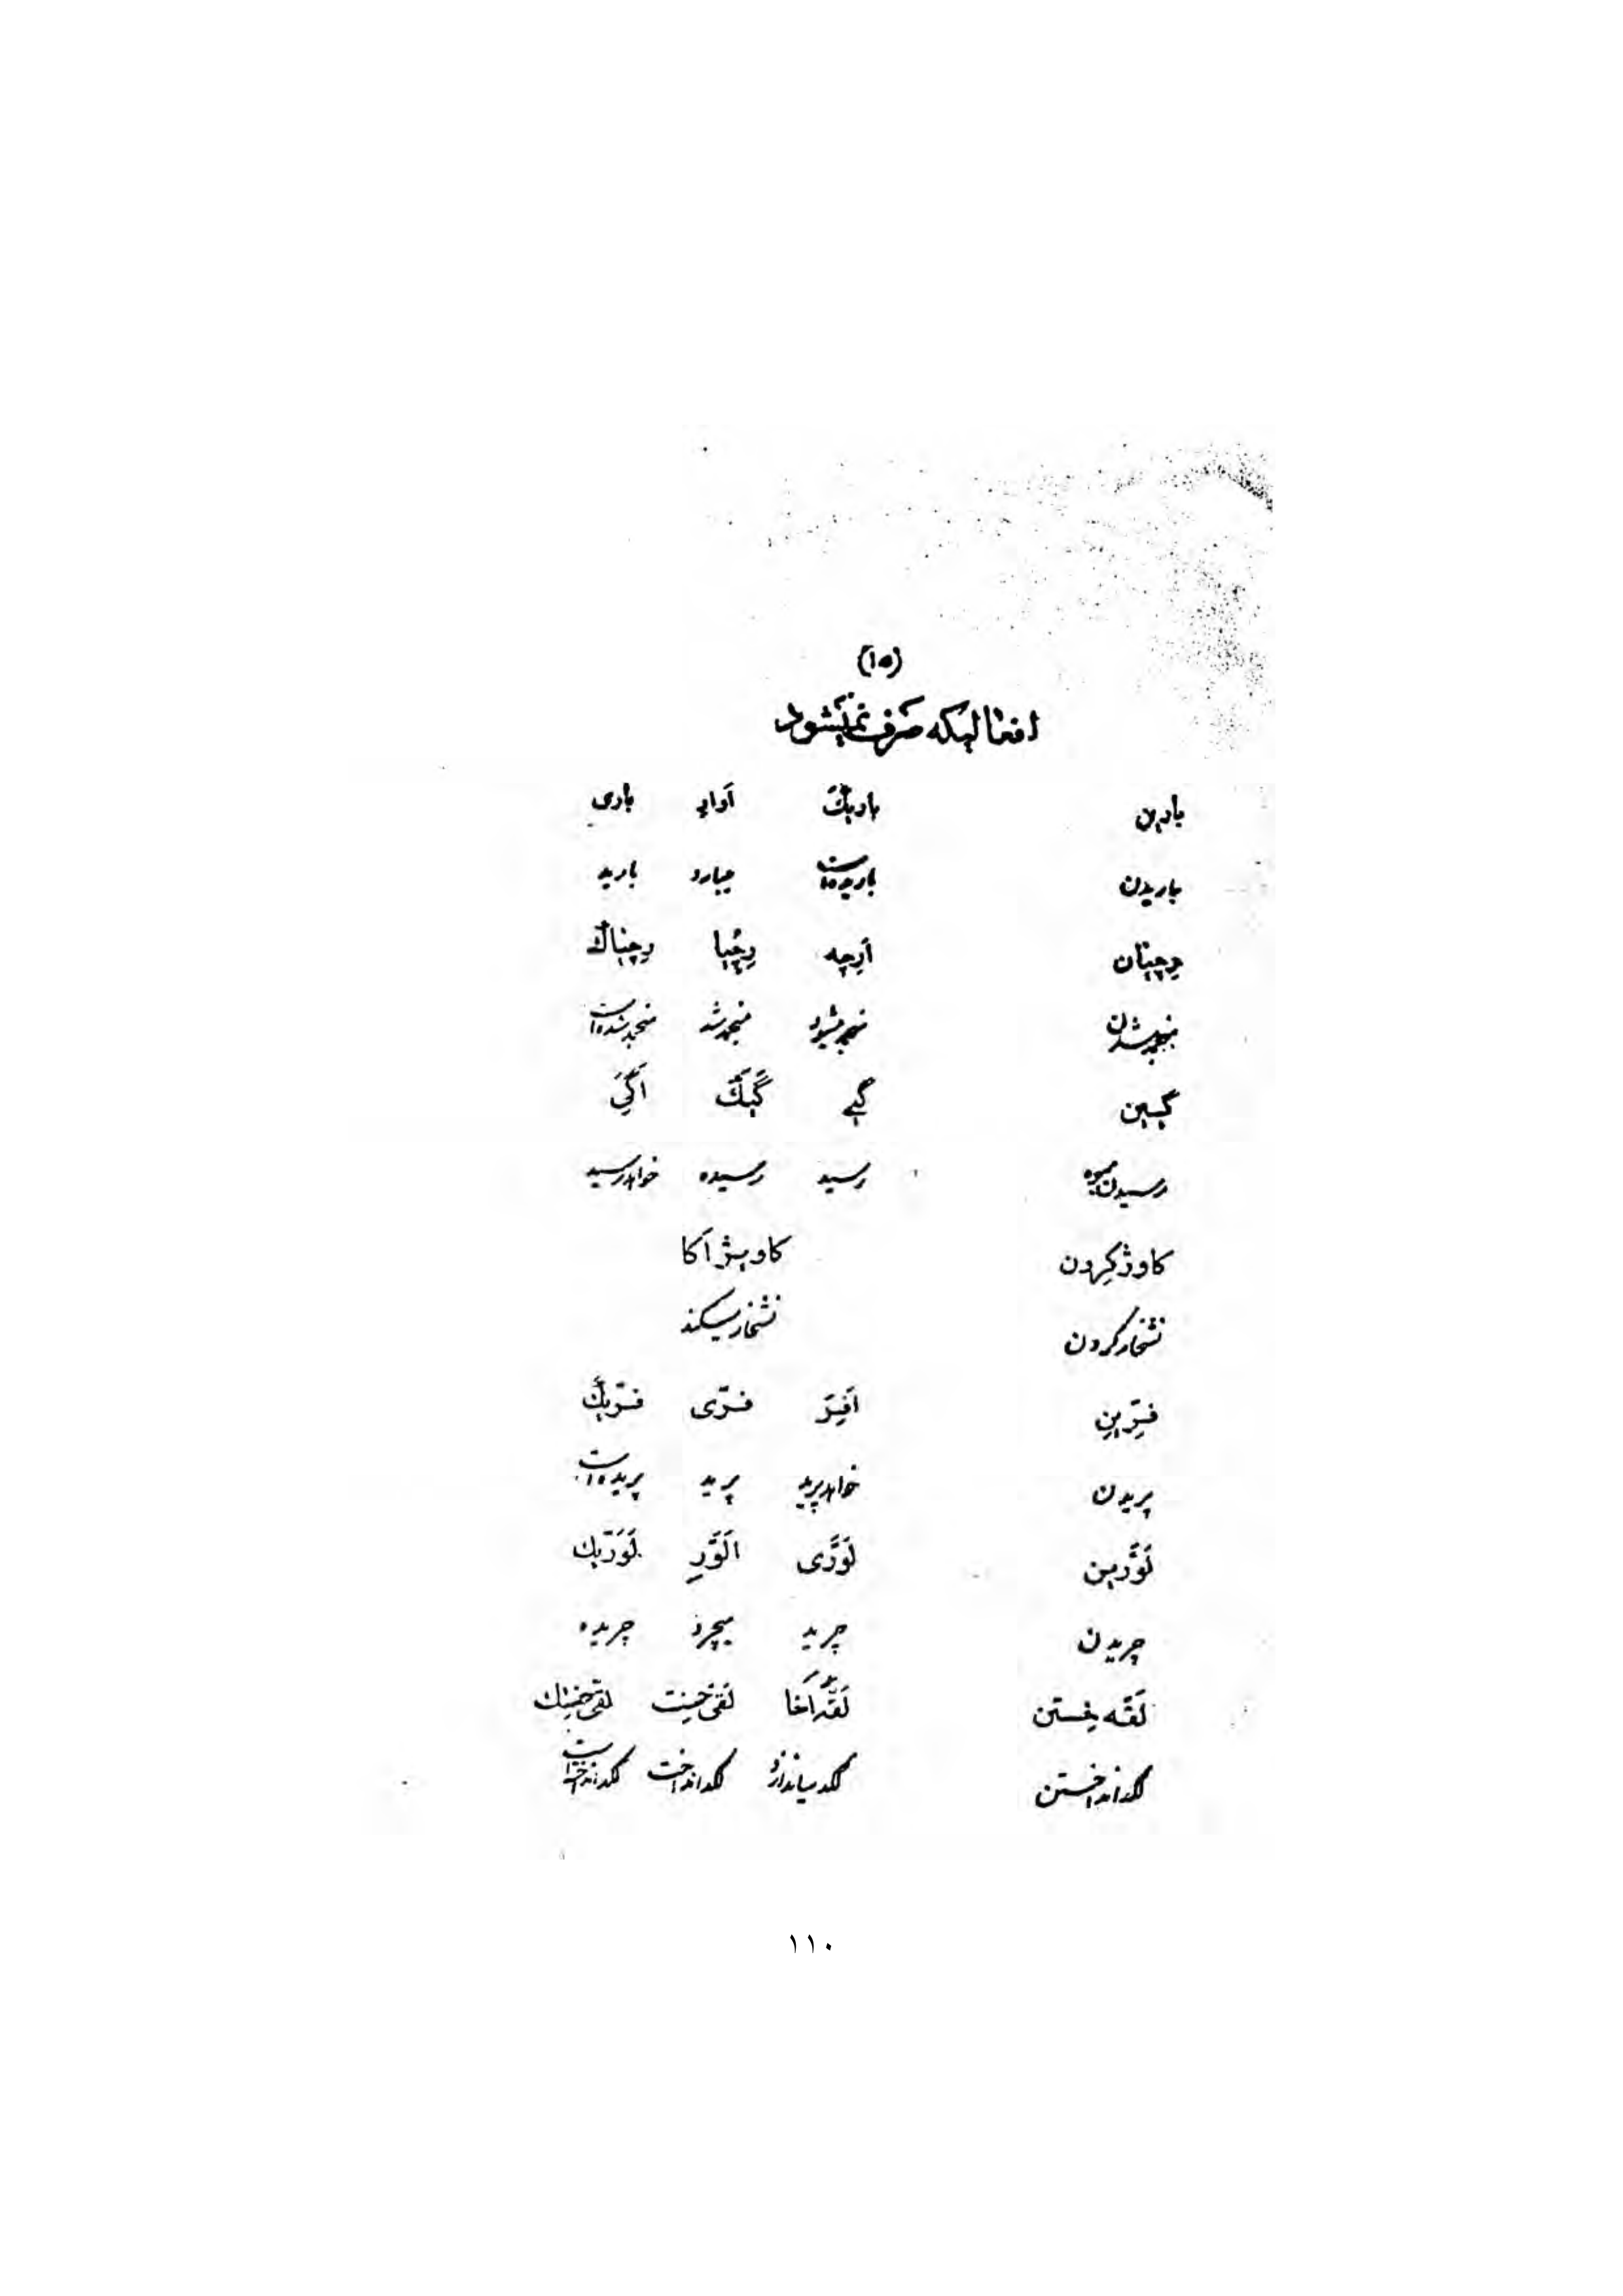 (١٥)
افعالیکه صرف نمیشود
بارین باریك آوار باری
باریدن باریده است میبارد بارید
وچینان أوچه وچیا وچیناك
منجمد شدن منجمد میشود منجمد شد منجمد شده است
گیین گیے گیك اگی
رسیدن میوه رسید رسیده خواهد رسید
کاوژ کردن کاویژ آکا
نشخار کردن نشخار میکند
فرّین افر فرّی فرّیك
پریدن خواهد پرید پرید پریده است
لوَرّین لوَرّی الوَر لوَرّیك
چریدن چرید میچرد چریده
لقه خستن لقه أخا لقی خست لقی خستك
لگد انداختن لگد میاندازد لگد انداخت لگد انداخته است
١١٠